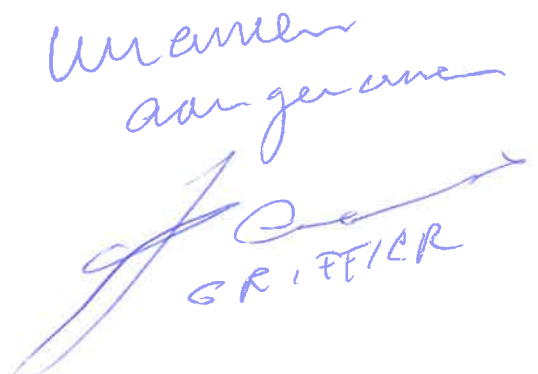 Unaniem
aangenomen
GRIFFIER